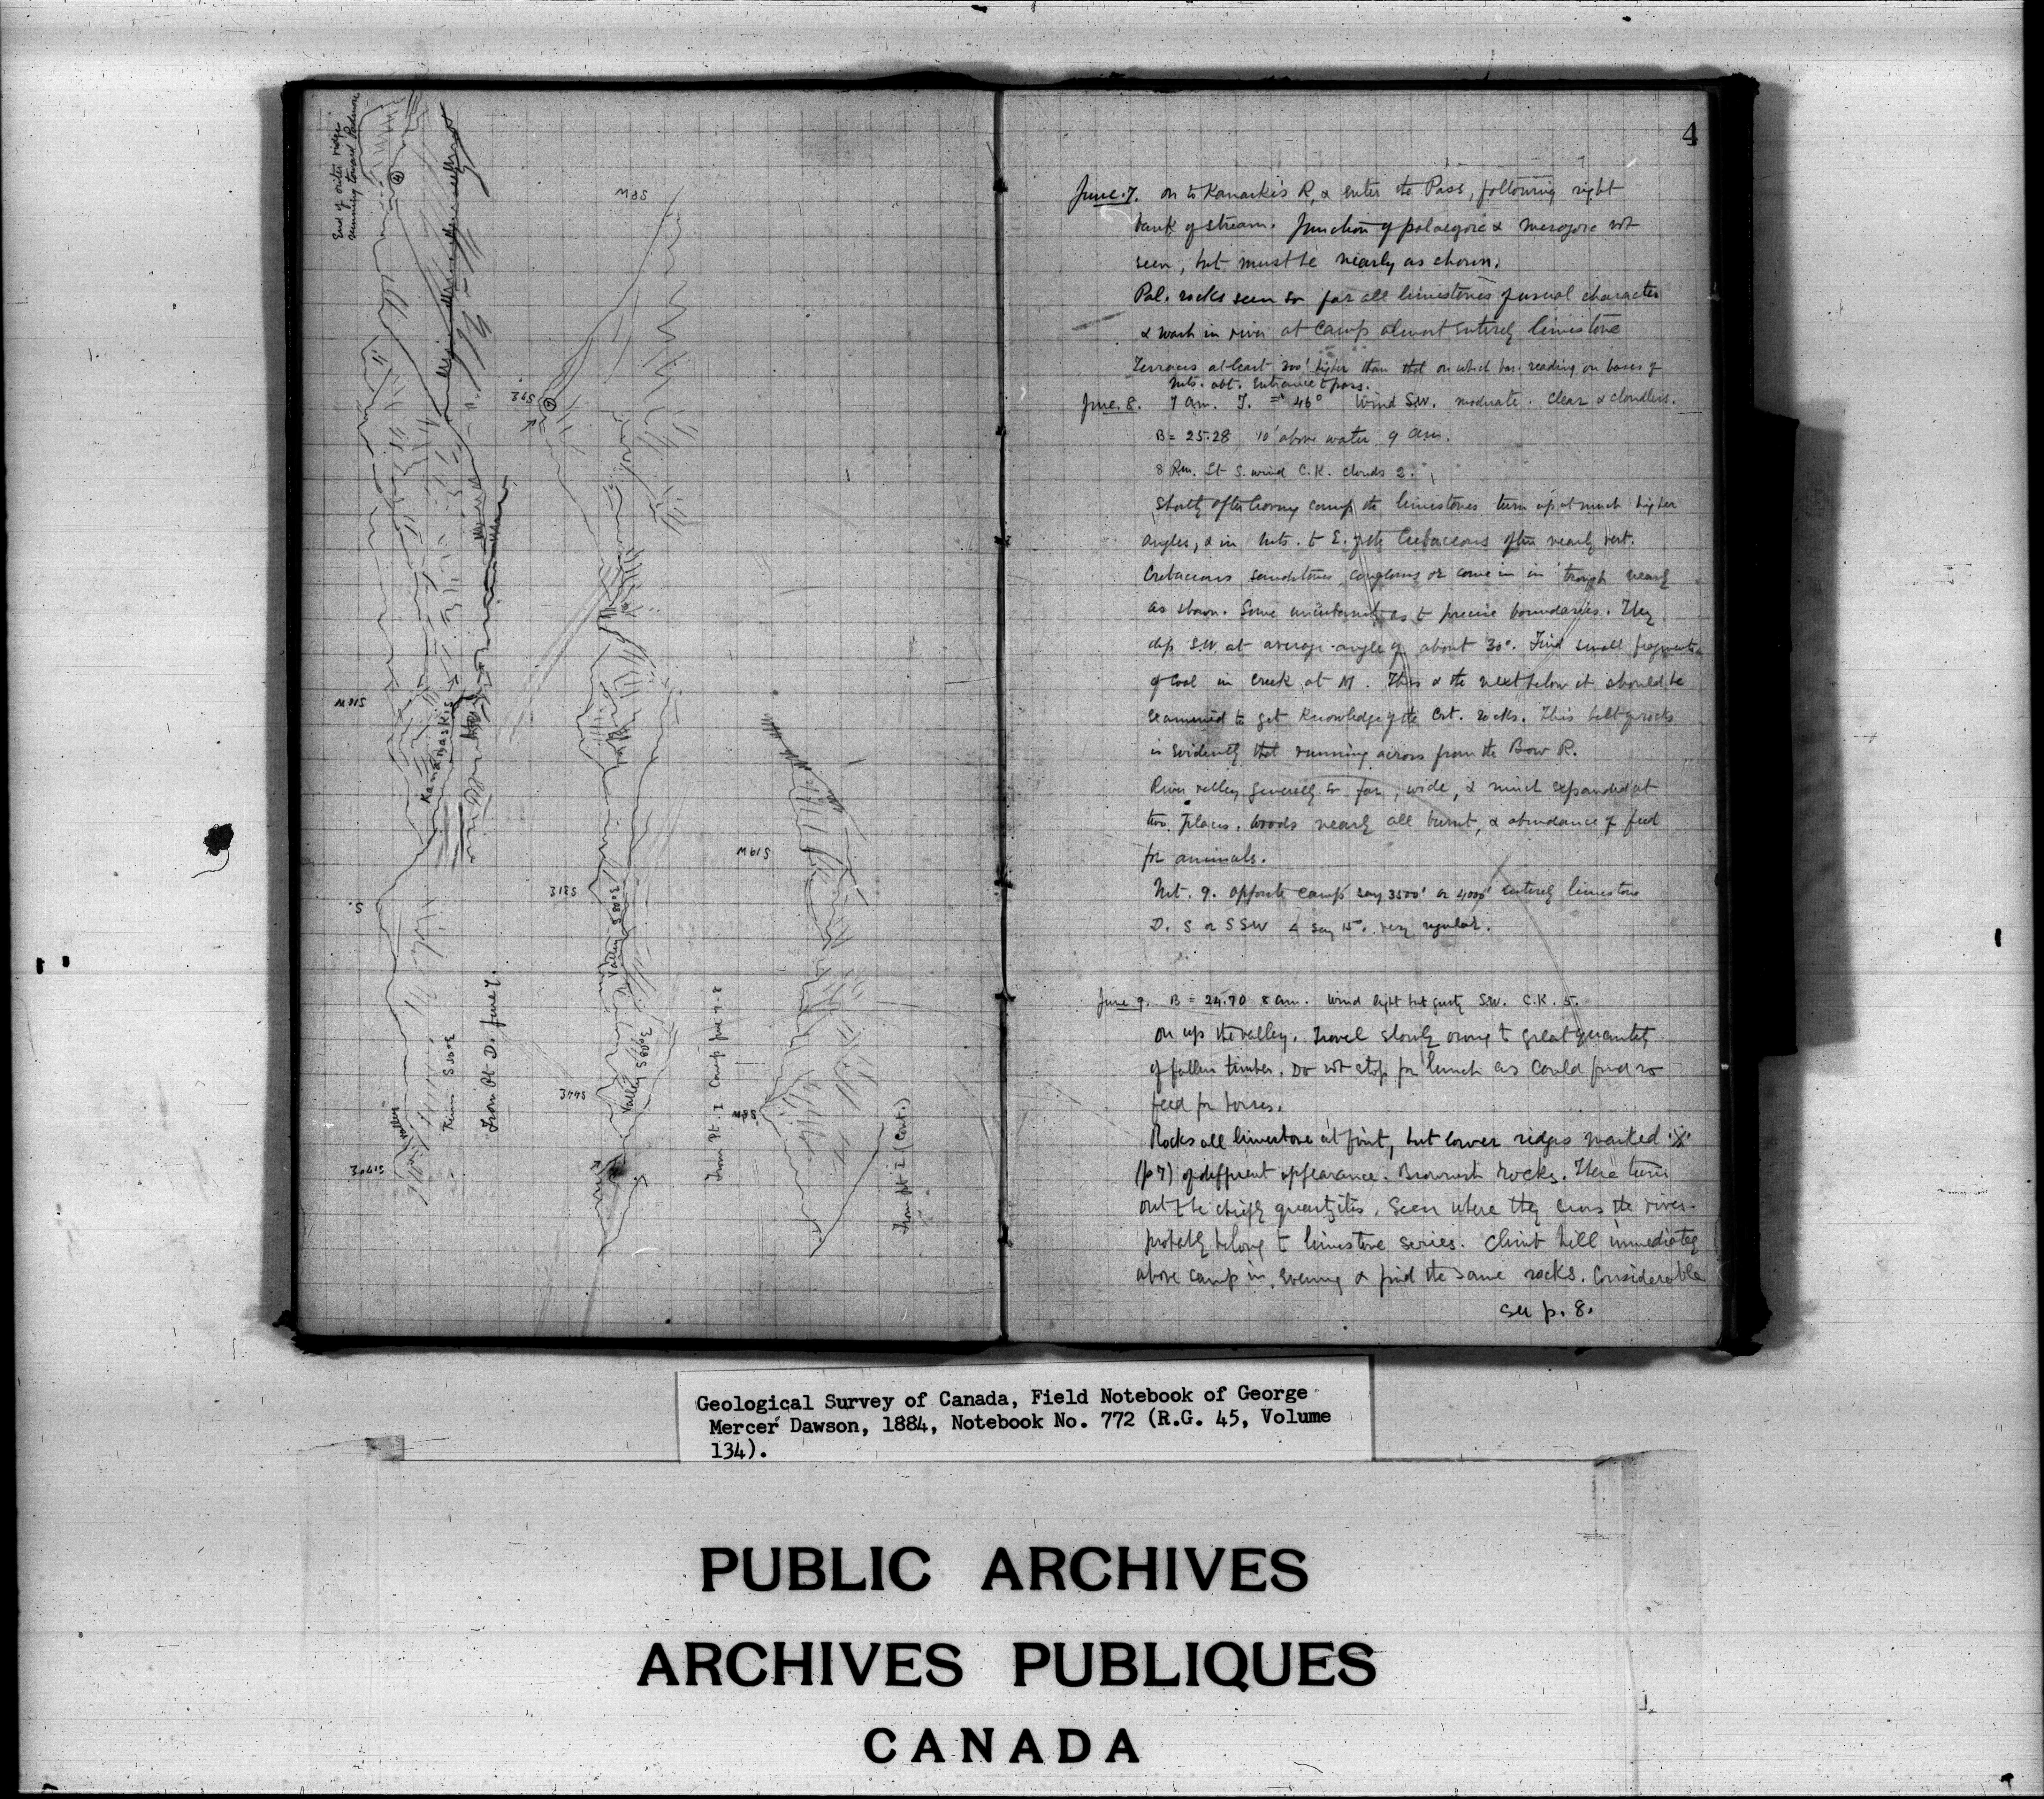 End of outer ridge
running toward Padmore
4
S8W
S92
S18W
Kananaskis
S.
S19W
S31E
Valley S80E
Valley S80E
S44E
S8W
S30E
From Pt D. June 7.
From Pt. I Camp June 7-8
From pt I (Cont.)
Valley
S170E
4
June 7. on to Kananaskis R, & enter the Pass, following right
bank of stream. Junction of palaeozoic & mesozoic not
seen, but must be nearly as shown.
Pal. rocks seen so far all limestones of usual character
& wash in river at camp almost entirely limestone
Terraces at least 300' higher than that on which bar. reading on bases of
Mts. abt. Entrance to pass.
June. 8. 7 am. T. = 46° Wind S.W. moderate. Clear & cloudless.
B = 25.28 10' above water 9 am.
8 P.m. Lt S. wind C.K. clouds 2.
Shortly after leaving camp the limestones turn up at much higher
angles, & in Mts. to E. of the Cretaceous often nearly vert.
Cretaceous sandstones, congloms &c come in in trough nearly
as shown. Some uncertainty as to precise boundaries. They
dip S.W. at average angle of about 30°. Find small fragments
of coal in Creek at M. This & the next below it should be
examined to get knowledge of the Cret. rocks. This belt of rocks
is evidently that running across from the Bow R.
River valley generally so far, wide, & much expanded at
two places. Woods nearly all burnt, & abundance of feed
for animals.
Mt. 9. opposite camp say 3500' or 4000' entirely limestone
D. S or SSW < say 15°. very regular.
June 9. B = 24.70 8 am. Wind light but gusty S.W. C.K. 5.
on up the valley. Travel slowly owing to great quantity
of fallen timber. Do not stop for lunch as could find no
feed for horses.
Rocks all limestone at first, but lower ridges marked ※
(p 7) of different appearance. Brownish rocks. These turn
out to be chiefly quartzites. Seen where they cross the river.
probably belong to limestone series. Climb hill immediately
above camp in evening & find the same rocks. Considerable
see p. 8.
Geological Survey of Canada, Field Notebook of George
Mercer Dawson, 1884, Notebook No. 772 (R.G. 45, Volume
134).
PUBLIC ARCHIVES
ARCHIVES PUBLIQUES
CANADA